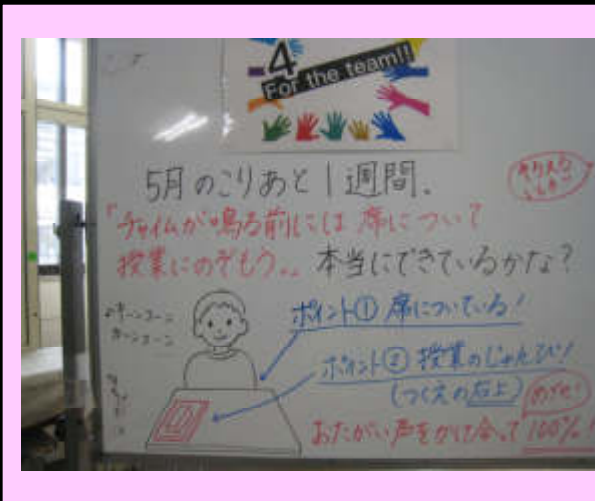 4
For the team!!
5月のこりあと1週間、
「チャイムが鳴る前には席について
授業にのぞもう。」本当にできているかな?
キーンコーン
カーンコーン
ポイント① 席についている!
ポイント② 授業のじゅんび!
(つくえの右上)
めざせ!
おたがい声をかけ合って100%!